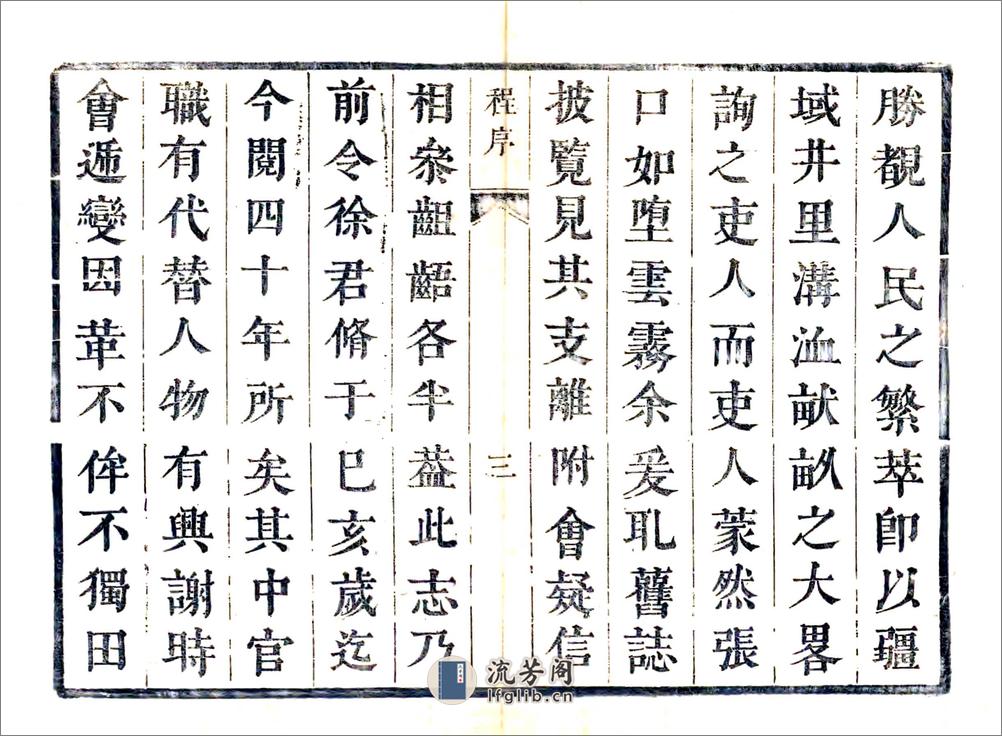 勝覩人民之繁萃卽以疆
域井里溝洫畎畝之大畧
詢之吏人而吏人蒙然張
口如墮雲霧余爰取舊誌
披覽見其支離附會疑信
程序
三
相叅齟齬各半葢此志乃
前令徐君脩于巳亥歲迄
今閱四十年所矣其中官
職有代替人物有興謝時
會遞變因革不侔不獨田
流芳阁
lfglib.cn